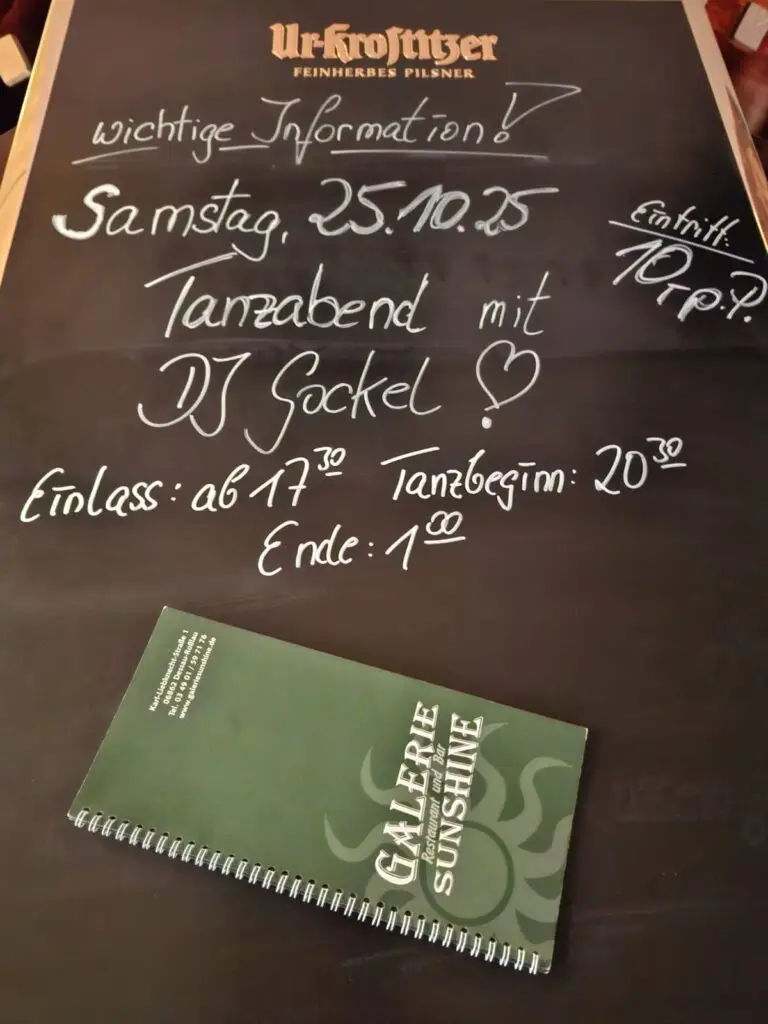 Ur-Krostitzer
FEINHERBES PILSNER
wichtige Information!
Samstag, 25.10.25
Eintritt:
10,- p.P.
Tanzabend mit
DJ Gockel
Einlass: ab 17³⁰ Tanzbeginn: 20³⁰
Ende: 1⁰⁰
Karl-Liebknecht-Straße 1
06862 Dessau-Roßlau
Tel. 03 49 01 / 59 71 76
www.galeriesunshine.de
GALERIE
Restaurant und Bar
SUNSHINE